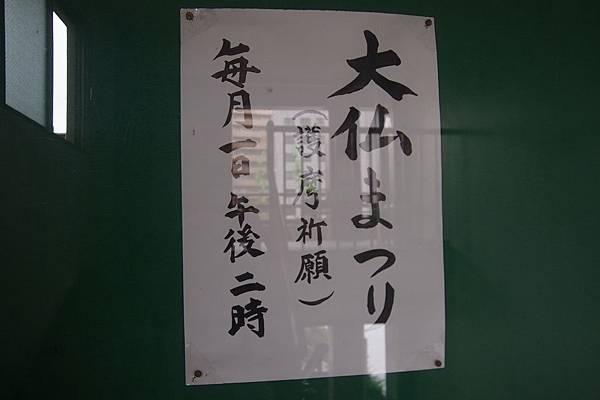 大仏まつり
（護摩祈願）
毎月一日午後二時